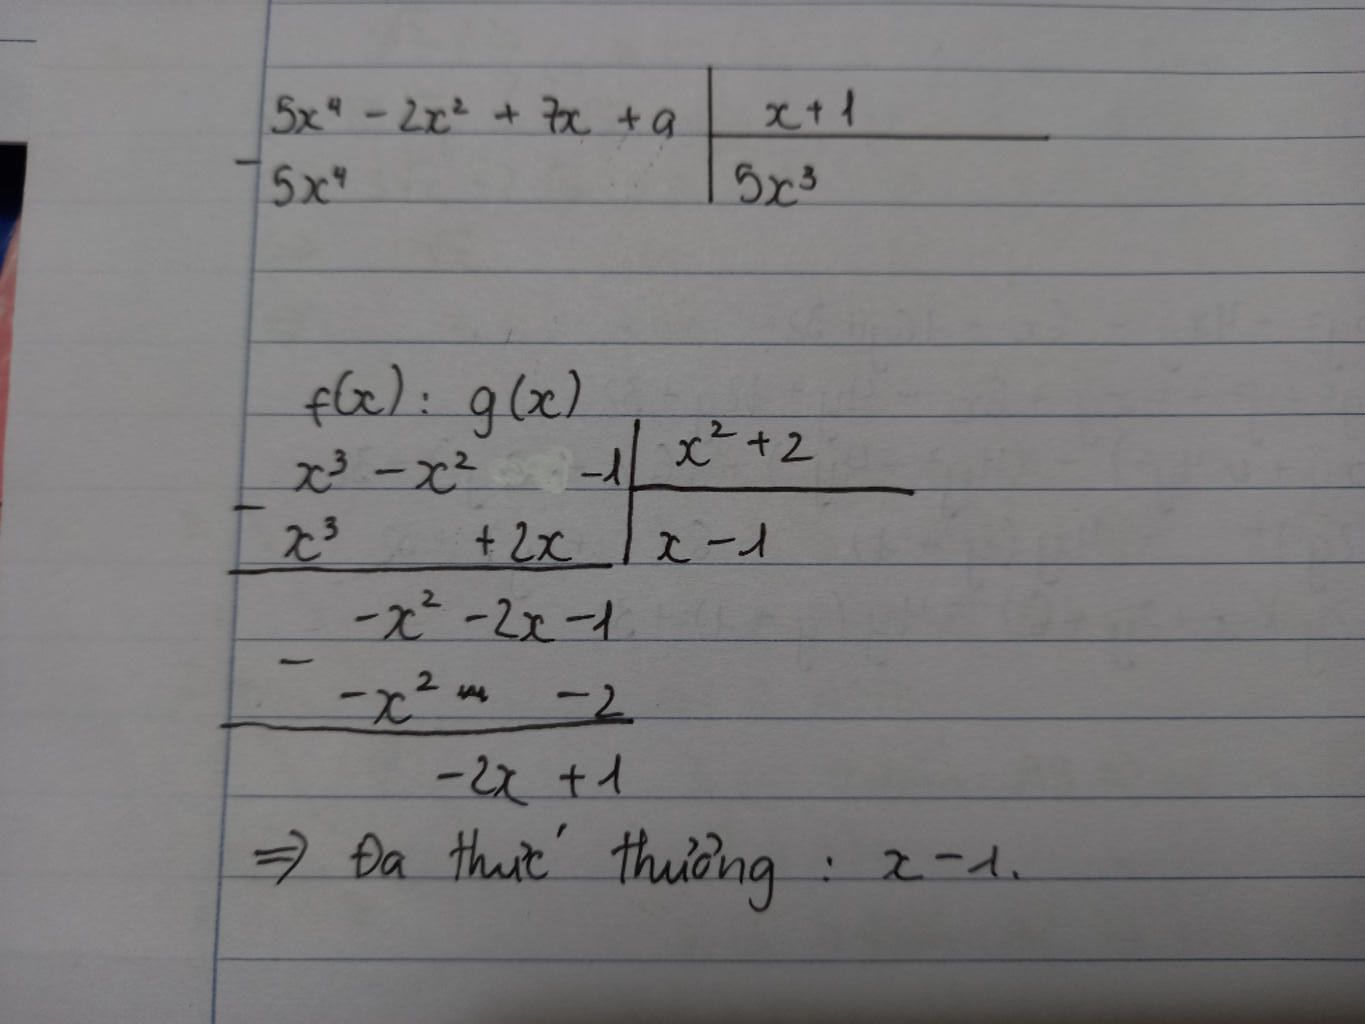 5x⁴ - 2x² + 7x + a | x + 1
- 5x⁴ | 5x³
f(x) : g(x)
x³ - x² -1 | x² + 2
- x³ + 2x | x - 1
-x² - 2x - 1
- -x² - 2
-2x + 1
=> Đa thức thương : x - 1.